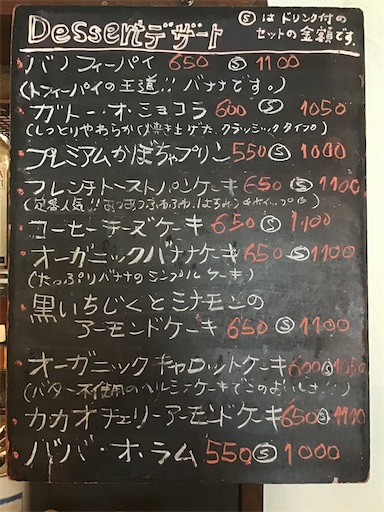 Dessert デザート
Ⓢはドリンク付の
セットの金額です。
バノフィーパイ 650 Ⓢ 1100
(トフィーパイの王道!! バナナです。)
ガトー・オ・ショコラ 600 Ⓢ 1050
(しっとりやわらかく焼き上げた クラッシックタイプ)
プレミアムかぼちゃプリン 550 Ⓢ 1000
フレンチトーストパンケーキ 650 Ⓢ 1100
(定番人気!! あつあつふわふわ。はちみつ
コーヒーチーズケーキ 650 Ⓢ 1100
オーガニックバナナケーキ 650 Ⓢ 1100
(たっぷりバナナのシンプルケーキ)
黒いちじくとシナモンの
アーモンドケーキ 650 Ⓢ 1100
オーガニックキャロットケーキ 600 Ⓢ 1050
(バター不使用のヘルシーケーキでこのおいしさ!!)
カカオチェリーアーモンドケーキ 650 Ⓢ 1100
ババ・オ・ラム 550 Ⓢ 1000